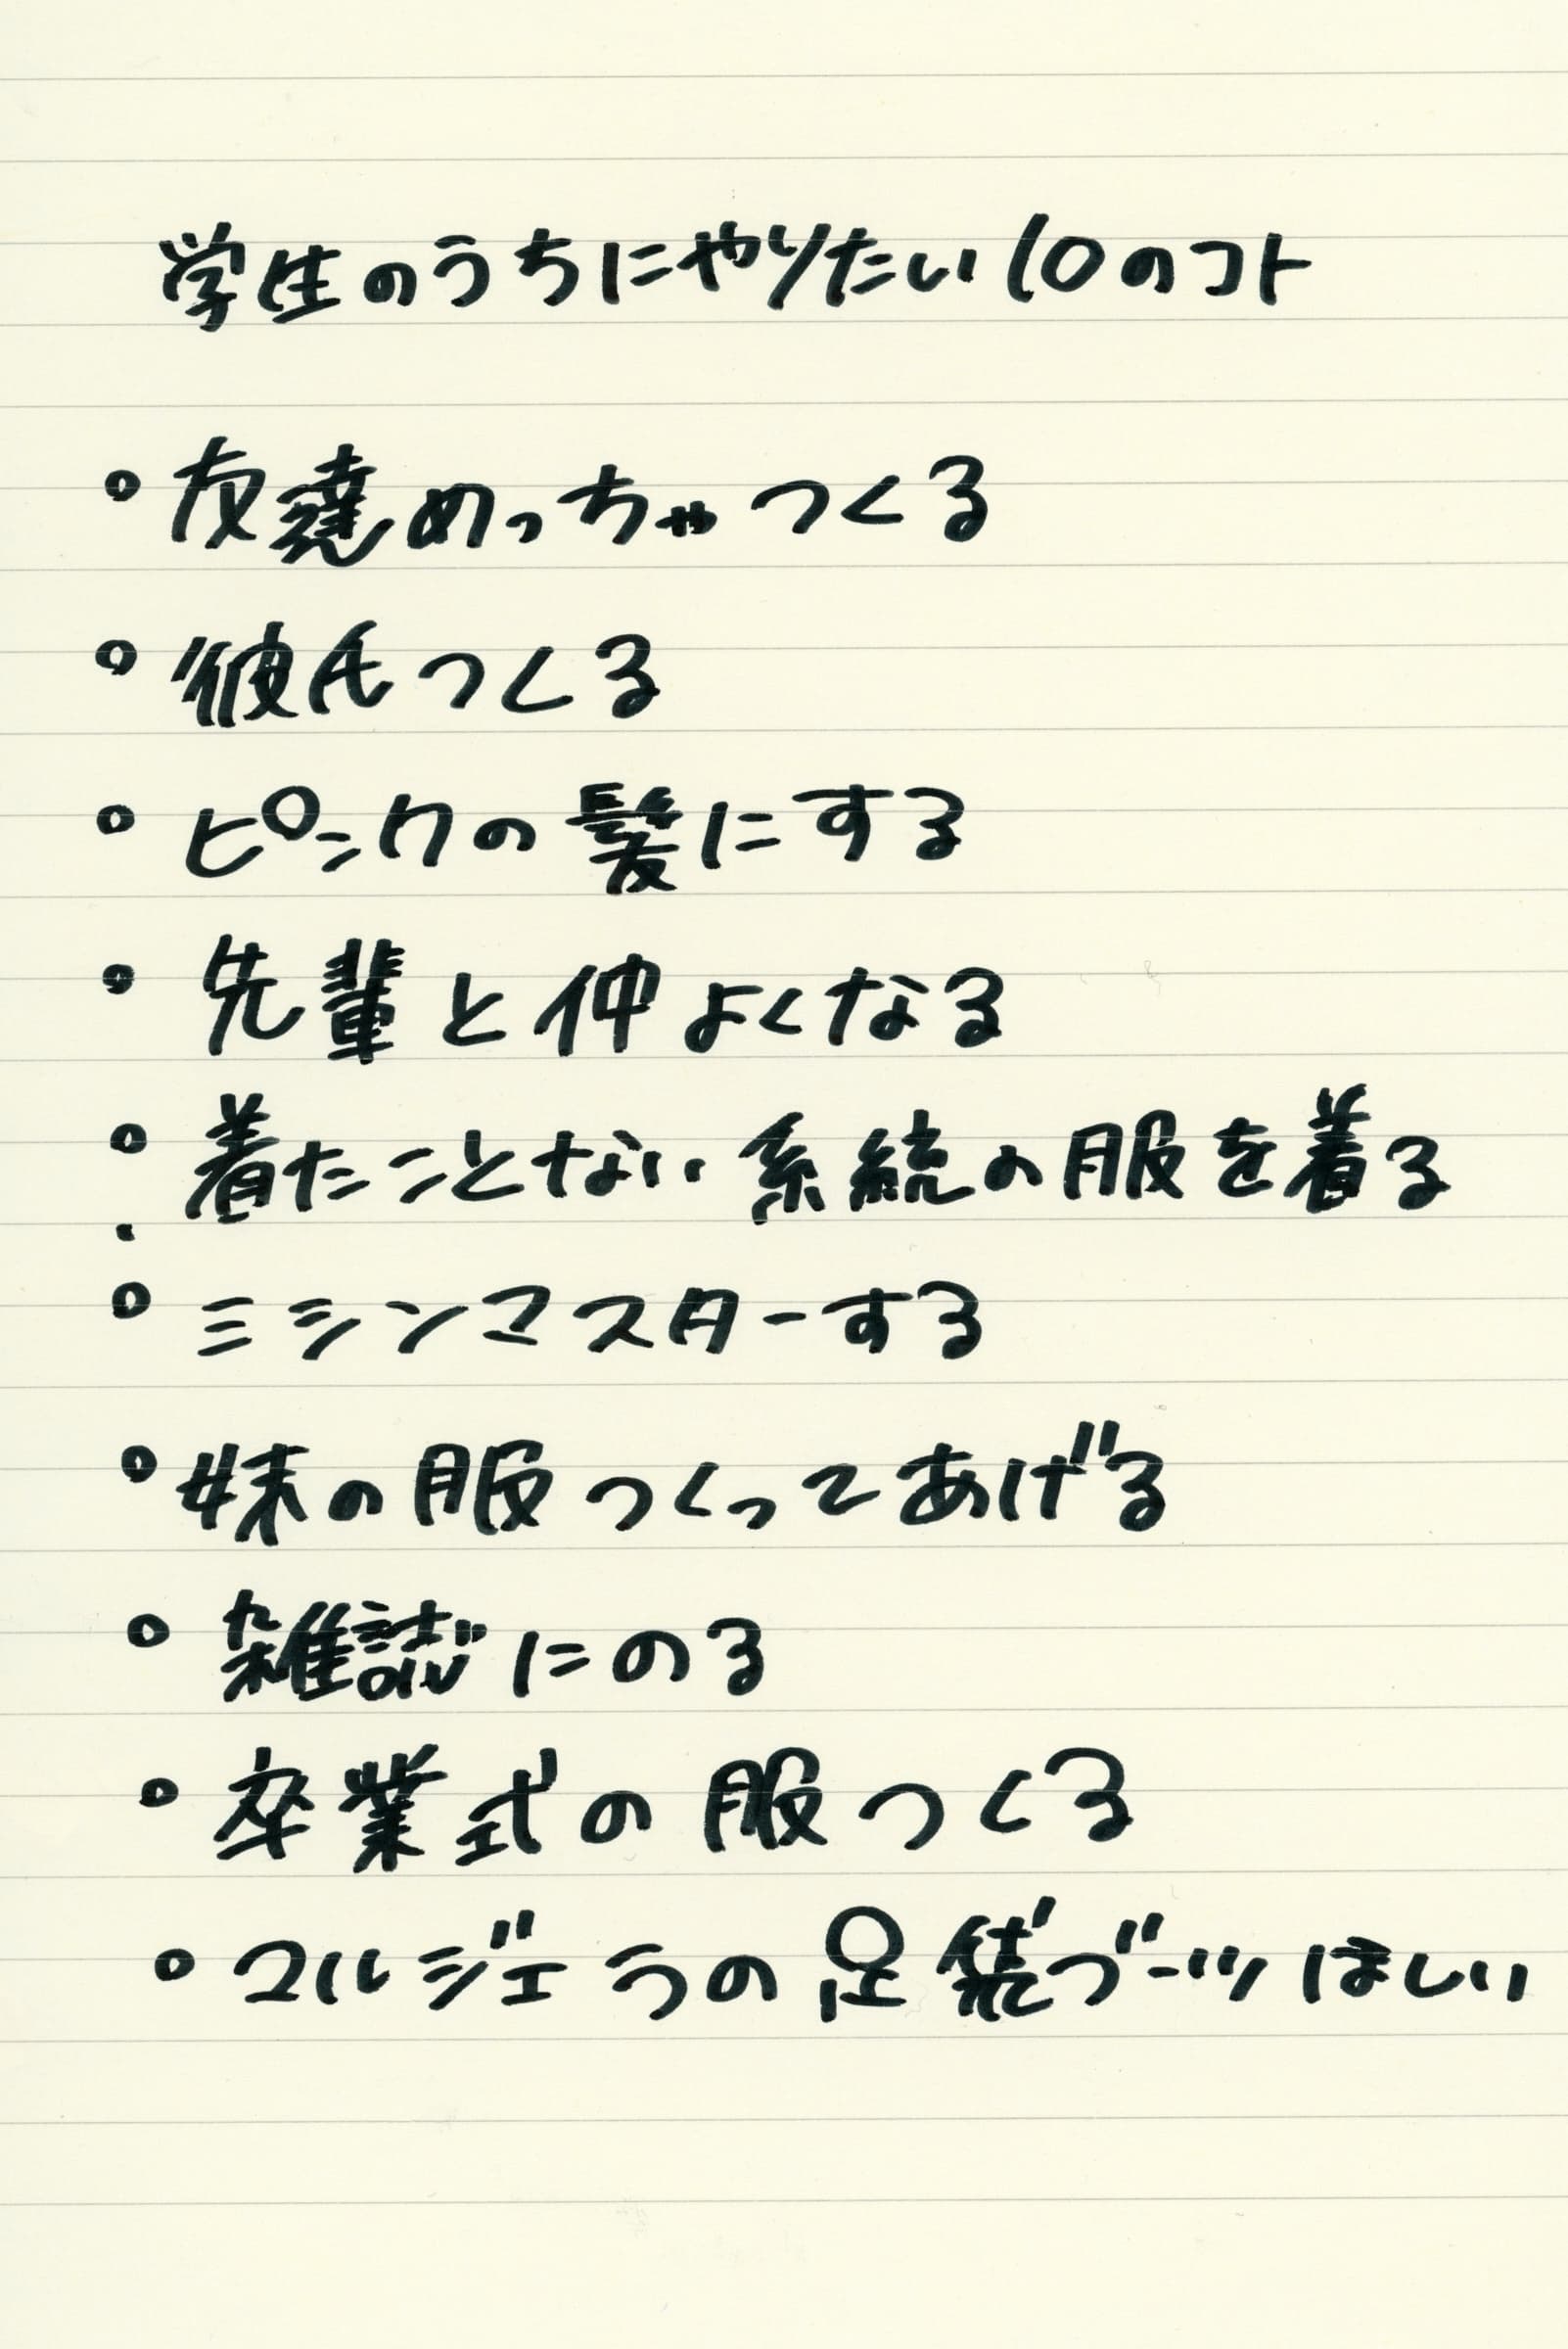 学生のうちにやりたい10のコト
・友達めっちゃつくる
・彼氏つくる
・ピンクの髪にする
・先輩と仲よくなる
・着たことない系統の服を着る
・ミシンマスターする
・妹の服つくってあげる
・雑誌にのる
・卒業式の服つくる
・マルジェラの足袋ブーツほしい